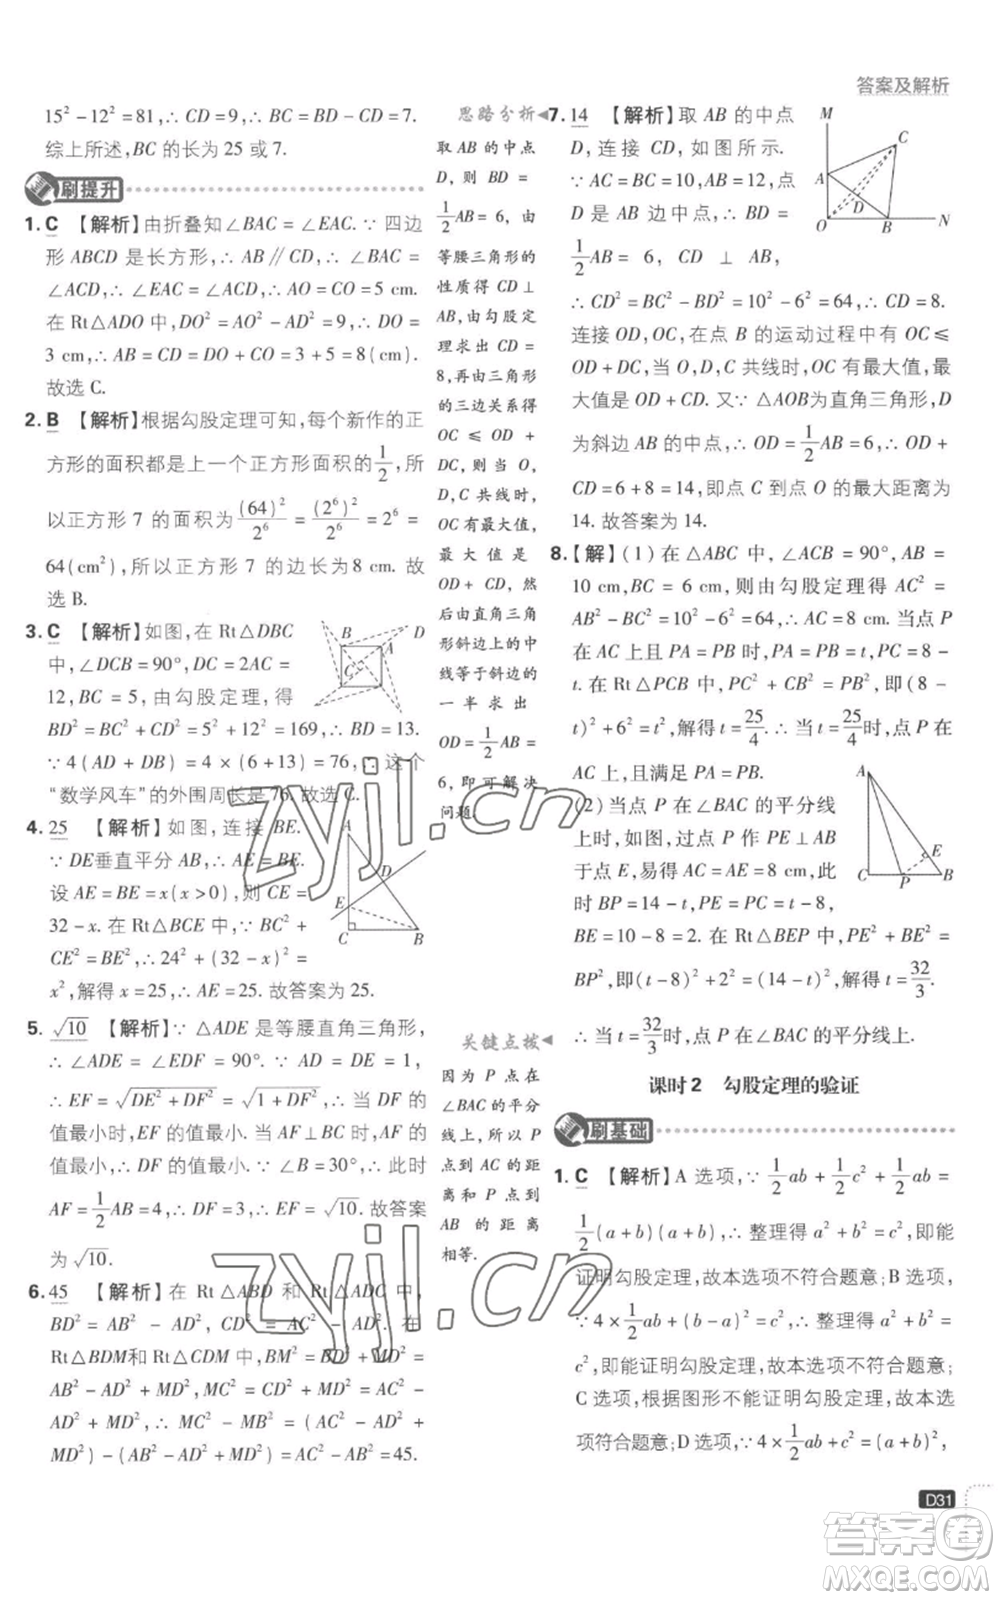 答案及解析
15²-12²=81,∴CD=9,∴BC=BD-CD=7.
综上所述,BC的长为25或7.
刷提升
1. C 【解析】由折叠知∠BAC=∠EAC.∵四边
形ABCD是长方形,∴AB∥CD,∴∠BAC=
∠ACD,∴∠EAC=∠ACD,∴AO=CO=5 cm.
在Rt△ADO中,DO²=AO²-AD²=9,∴DO=
3 cm,∴AB=CD=DO+CO=3+5=8(cm).
故选C.
2. B 【解析】根据勾股定理可知,每个新作的正
方形的面积都是上一个正方形面积的1/2,所
以正方形7的面积为(64)²/2⁶=(2⁶)²/2⁶=2⁶=
64(cm²),所以正方形7的边长为8 cm.故
选B.
3. C 【解析】如图,在Rt△DBC
中,∠DCB=90°,DC=2AC=
12,BC=5,由勾股定理,得
BD²=BC²+CD²=5²+12²=169,∴BD=13.
∵4(AD+DB)=4×(6+13)=76,∴这个
“数学风车”的外围周长是76.故选C.
B D
A
C
4. 25 【解析】如图,连接BE.
∵DE垂直平分AB,∴AE=BE.
设AE=BE=x(x>0),则CE=
32-x.在Rt△BCE中,∵BC²+
CE²=BE²,∴24²+(32-x)²=
x²,解得x=25,∴AE=25.故答案为25.
A
D
E
C B
5. √10 【解析】∵△ADE是等腰直角三角形,
∴∠ADE=∠EDF=90°.∵AD=DE=1,
∴EF=√(DE²+DF²)=√(1+DF²),∴当DF的
值最小时,EF的值最小.当AF⊥BC时,AF的
值最小,∴DF的值最小.∵∠B=30°,∴此时
AF=1/2AB=4,∴DF=3,∴EF=√10.故答案
为√10.
6. 45 【解析】在Rt△ABD和Rt△ADC中,
BD²=AB²-AD²,CD²=AC²-AD².在
Rt△BDM和Rt△CDM中,BM²=BD²+MD²=
AB²-AD²+MD²,MC²=CD²+MD²=AC²-
AD²+MD²,∴MC²-MB²=(AC²-AD²+
MD²)-(AB²-AD²+MD²)=AC²-AB²=45.
思路分析
取AB的中点
D,则BD=
1/2AB=6,由
等腰三角形的
性质得CD⊥
AB,由勾股定
理求出CD=
8,再由三角形
的三边关系得
OC≤OD+
DC,则当O,
D,C共线时,
OC有最大值,
最大值是
OD+CD,然
后由直角三角
形斜边上的中
线等于斜边的
一半求出
OD=1/2AB=
6,即可解决
问题.
关键点拨
因为P点在
∠BAC的平分
线上,所以P
点到AC的距
离和P点到
AB的距离
相等.
7. 14 【解析】取AB的中点
D,连接CD,如图所示.
∵AC=BC=10,AB=12,点
D是AB边中点,∴BD=
1/2AB=6,CD⊥AB,
∴CD²=BC²-BD²=10²-6²=64,∴CD=8.
连接OD,OC,在点B的运动过程中有OC≤
OD+DC,∴当O,D,C共线时,OC有最大值,最
大值是OD+CD.又∵△AOB为直角三角形,D
为斜边AB的中点,∴OD=1/2AB=6,∴OD+
CD=6+8=14,即点C到点O的最大距离为
14.故答案为14.
M
C
A
D
O B N
8.【解】(1)在△ABC中,∠ACB=90°,AB=
10 cm,BC=6 cm,则由勾股定理得AC²=
AB²-BC²=10²-6²=64,∴AC=8 cm.当点P
在AC上且PA=PB时,PA=PB=t,PC=8-
t.在Rt△PCB中,PC²+CB²=PB²,即(8-
t)²+6²=t²,解得t=25/4.∴当t=25/4时,点P在
AC上,且满足PA=PB.
(2)当点P在∠BAC的平分线
上时,如图,过点P作PE⊥AB
于点E,易得AC=AE=8 cm,此
时BP=14-t,PE=PC=t-8,
BE=10-8=2.在Rt△BEP中,PE²+BE²=
BP²,即(t-8)²+2²=(14-t)²,解得t=32/3.
∴当t=32/3时,点P在∠BAC的平分线上.
A
E
C P B
课时2 勾股定理的验证
刷基础
1. C 【解析】A选项,∵1/2ab+1/2c²+1/2ab=
1/2(a+b)(a+b),∴整理得a²+b²=c²,即能
证明勾股定理,故本选项不符合题意;B选项,
∵4×1/2ab+(b-a)²=c²,∴整理得a²+b²=
c²,即能证明勾股定理,故本选项不符合题意;
C选项,根据图形不能证明勾股定理,故本选
项符合题意;D选项,∵4×1/2ab+c²=(a+b)²,
D31
zyjl.cn
zyjl.cn
答案卷
MXQE.COM